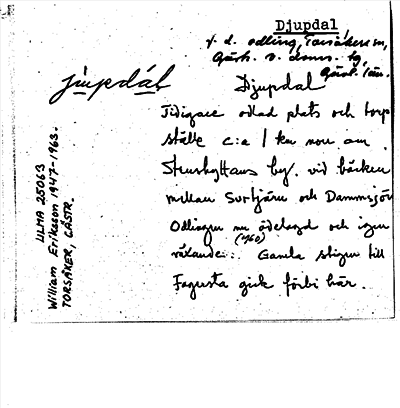 Djupdal
f. d. odling, Torsåker sn,
Gästr. v. doms. tg,
Gävl. län.
jùpdál Djupdal
Tidigare odlad plats och torp
ställe c:a 1 km norr om
Stenshyttans by. vid bäcken
mellan Surtjärn och Dammsjön
Odlingen nu ödelagd och igen
växande. (1960) Gamla stigen till
Fagersta gick förbi här.
ULMA 25063
William Eriksson 1947-1963.
TORSÅKER, GÄSTR.